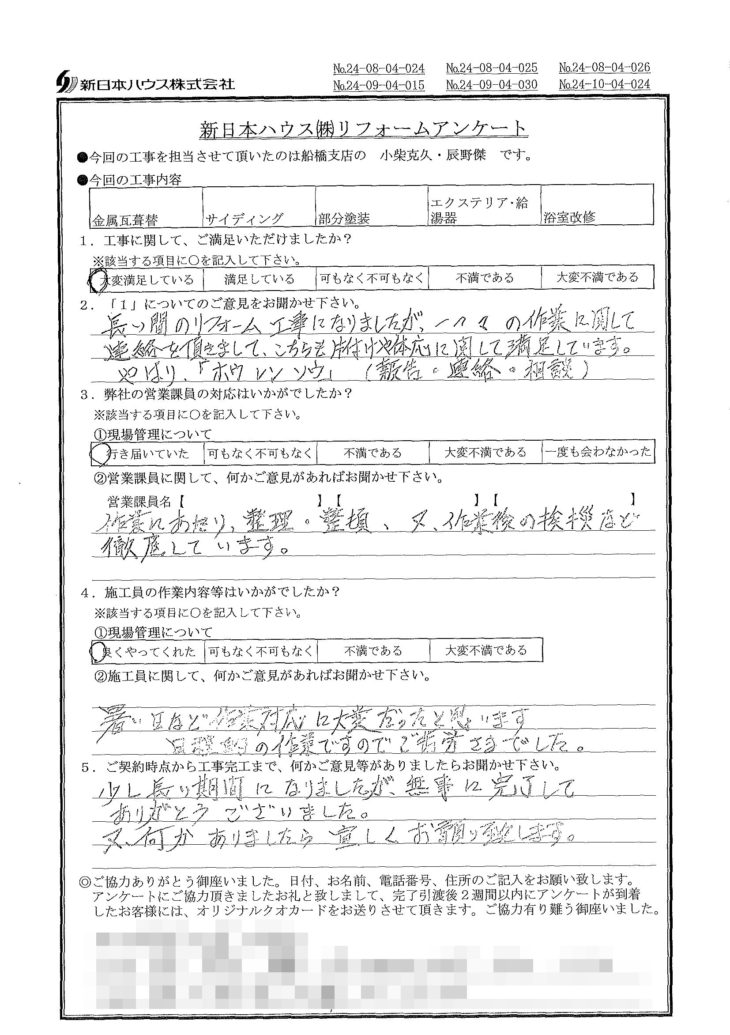 新日本ハウス株式会社
No.24-08-04-024 No.24-08-04-025 No.24-08-04-026
No.24-09-04-015 No.24-09-04-030 No.24-10-04-024
新日本ハウス㈱リフォームアンケート
●今回の工事を担当させて頂いたのは船橋支店の 小柴克久・辰野傑 です。
●今回の工事内容
金属瓦葺替 サイディング 部分塗装 エクステリア・給湯器 浴室改修
1．工事に関して、ご満足いただけましたか？
※該当する項目に○を記入して下さい。
大変満足している 満足している 可もなく不可もなく 不満である 大変不満である
2．「1」についてのご意見をお聞かせ下さい。
長い間のリフォーム工事になりましたが、一つ々々の作業に関して
連絡を頂きまして、こちらも片付けや体応に関して満足しています。
やはり、「ホウ レン ソウ」（報告・連絡・相談）
3．弊社の営業課員の対応はいかがでしたか？
※該当する項目に○を記入して下さい。
①現場管理について
行き届いていた 可もなく不可もなく 不満である 大変不満である 一度も会わなかった
②営業課員に関して、何かご意見があればお聞かせ下さい。
営業課員名【 】【 】【 】
作業にあたり、整理・整頓、又、作業後の挨拶など
徹底しています。
4．施工員の作業内容等はいかがでしたか？
※該当する項目に○を記入して下さい。
①現場管理について
良くやってくれた 可もなく不可もなく 不満である 大変不満である
②施工員に関して、何かご意見があればお聞かせ下さい。
暑い日など作業対応に大変だったと思います
の作業ですのでご苦労さまでした。
5．ご契約時点から工事完工まで、何かご意見等がありましたらお聞かせ下さい。
少し長い期間になりましたが、無事に完了して
ありがとうございました。
又、何かありましたら宜しくお願い致します。
◎ご協力ありがとう御座いました。日付、お名前、電話番号、住所のご記入をお願い致します。
アンケートにご協力頂きましたお礼と致しまして、完了引渡後2週間以内にアンケートが到着
したお客様には、オリジナルクオカードをお送りさせて頂きます。ご協力有り難う御座いました。